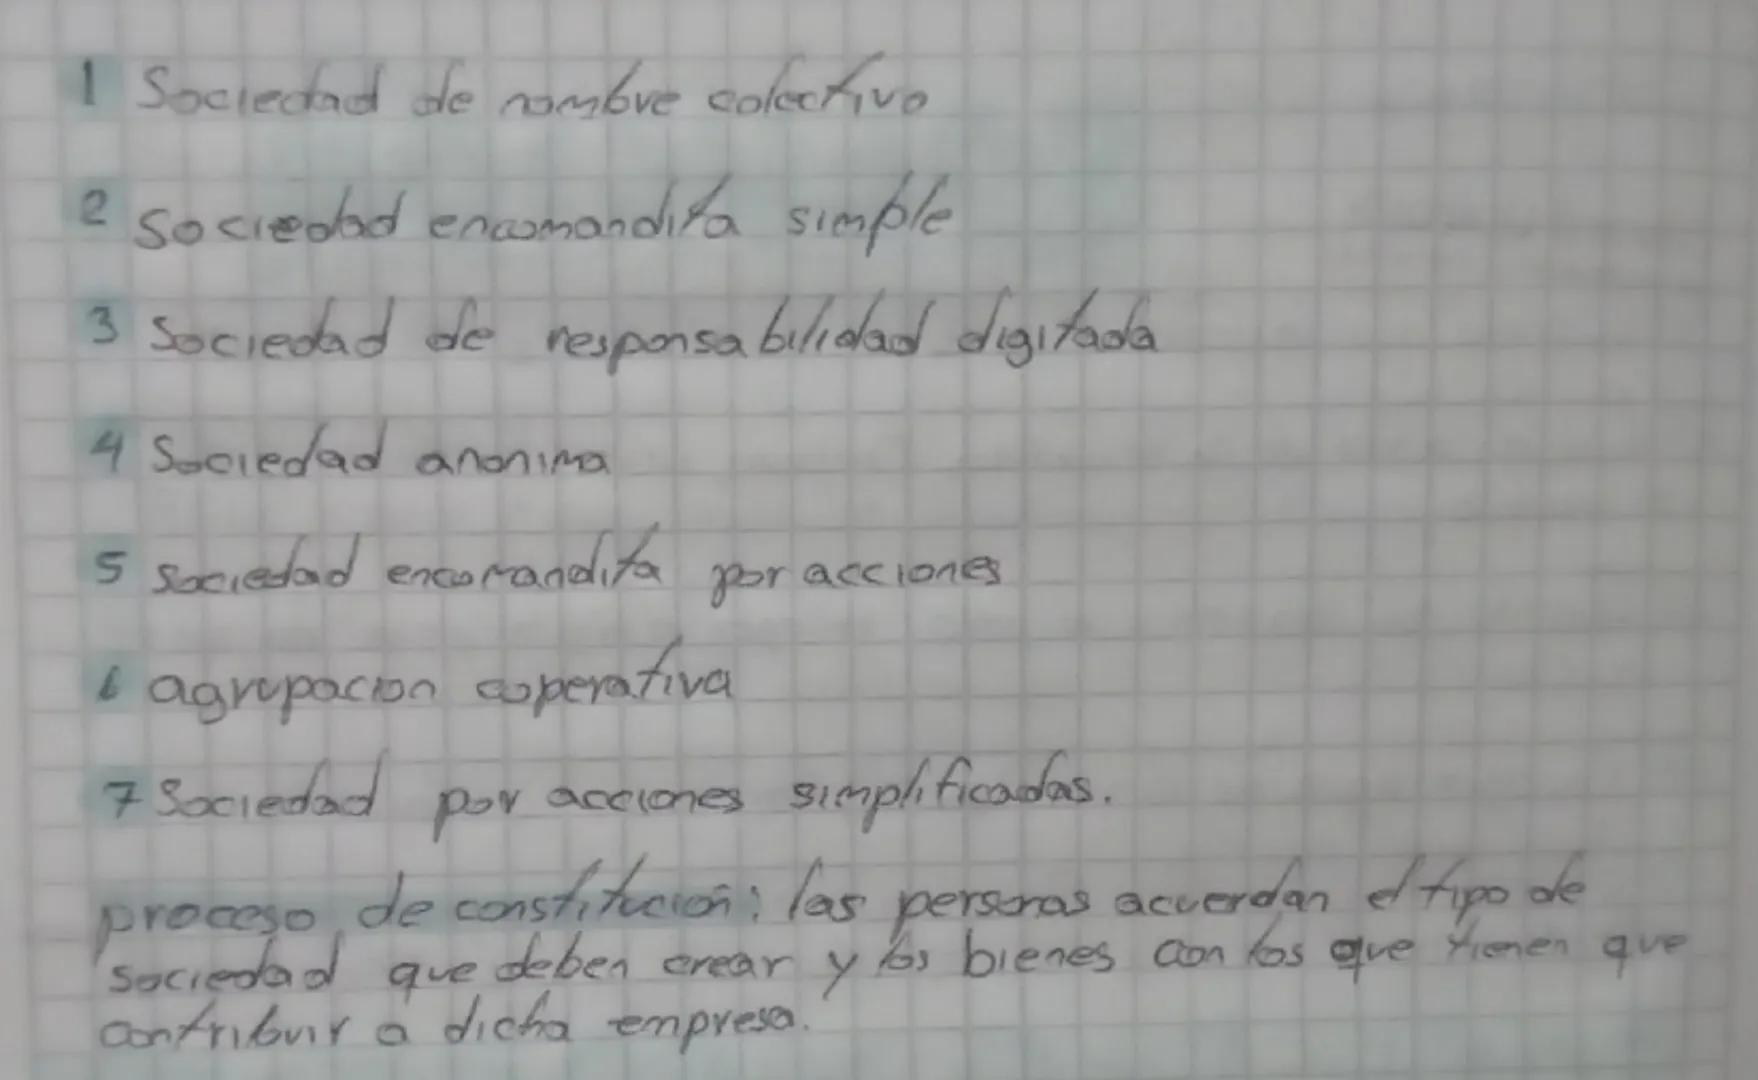 1 Sociedad de nombre colectivo
2 Sociedad encomandita simple
3 Sociedad de responsabilidad digitada
4 Sociedad anonima
5 Sociedad encomandita por acciones
6 agrupacion coperativa
7 Sociedad por acciones simplificadas.
proceso de constitución: las personas acuerdan el tipo de
sociedad que deben crear y los bienes con los que tienen que
contribuir a dicha empresa.